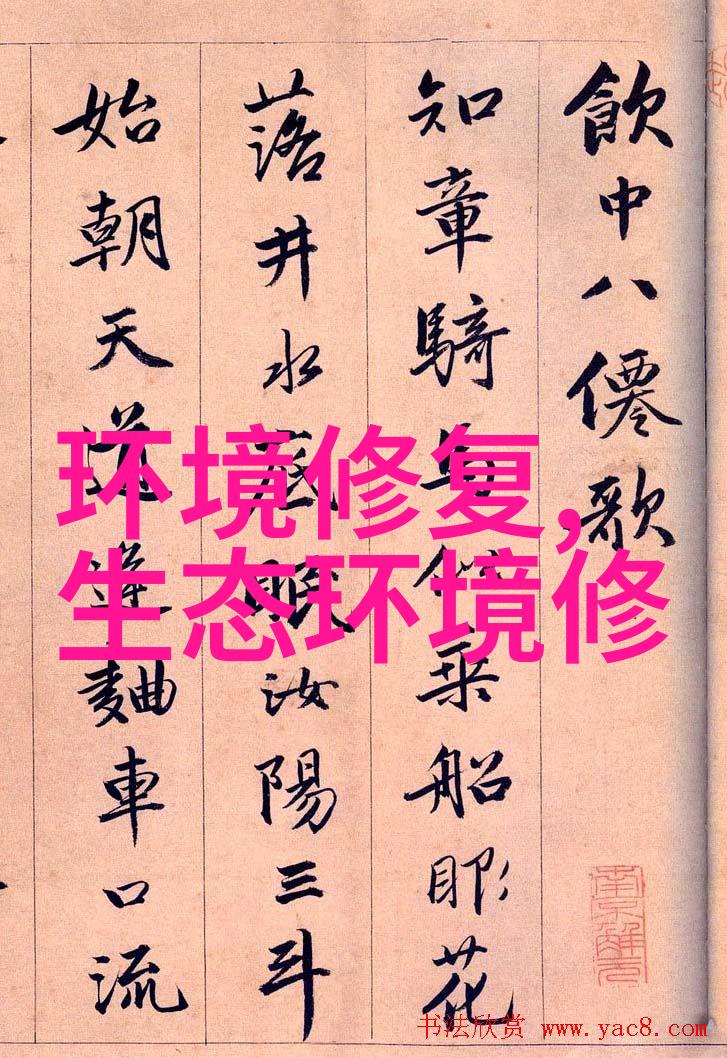 飲中八僊歌
知章騎馬似乘船眼花
落井水底眠汝陽三斗
始朝天道逢麯車口流
环境修复,
生态环境修
南京解元
书法欣赏 www.yac8.com